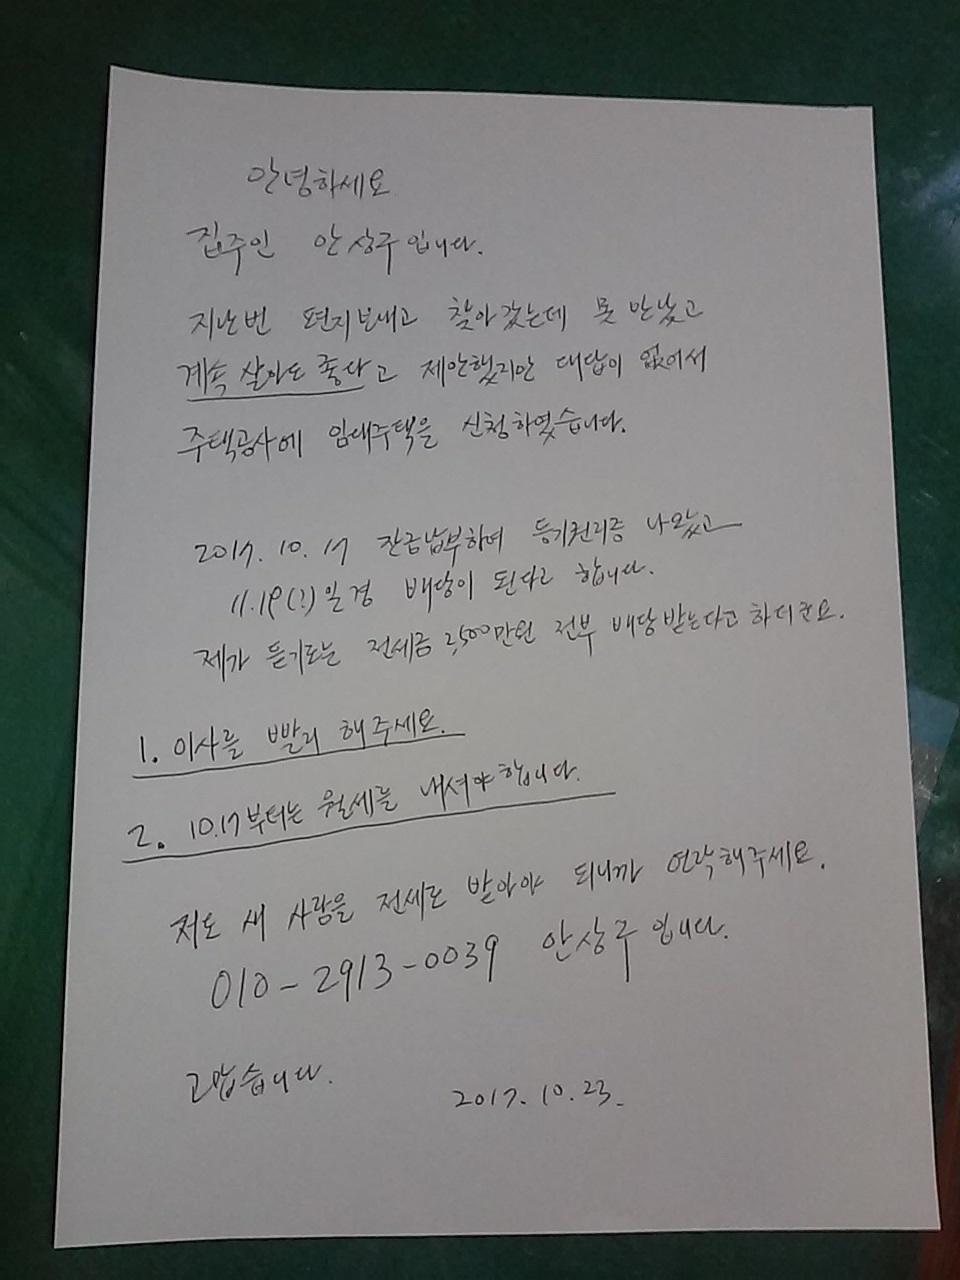 안녕하세요
집주인 안상구입니다.
지난번 편지보내고 찾아갔는데 못 만났고
계속 살아도 좋다고 제안했지만 대답이 없어서
주택공사에 임대주택을 신청하였습니다.
2017. 10. 17 잔금납부하여 등기권리증 나왔고
11.19(?)일경 배당이 된다고 합니다.
제가 듣기로는 전세금 2,500만원 전부 배당받는다고 하더군요.
1. 이사를 빨리 해주세요.
2. 10.17부터는 월세를 내셔야합니다.
저도 새 사람을 전세로 받아야 되니까 연락해주세요.
010-2913-0039 안상구입니다.
고맙습니다.
2017. 10. 23.